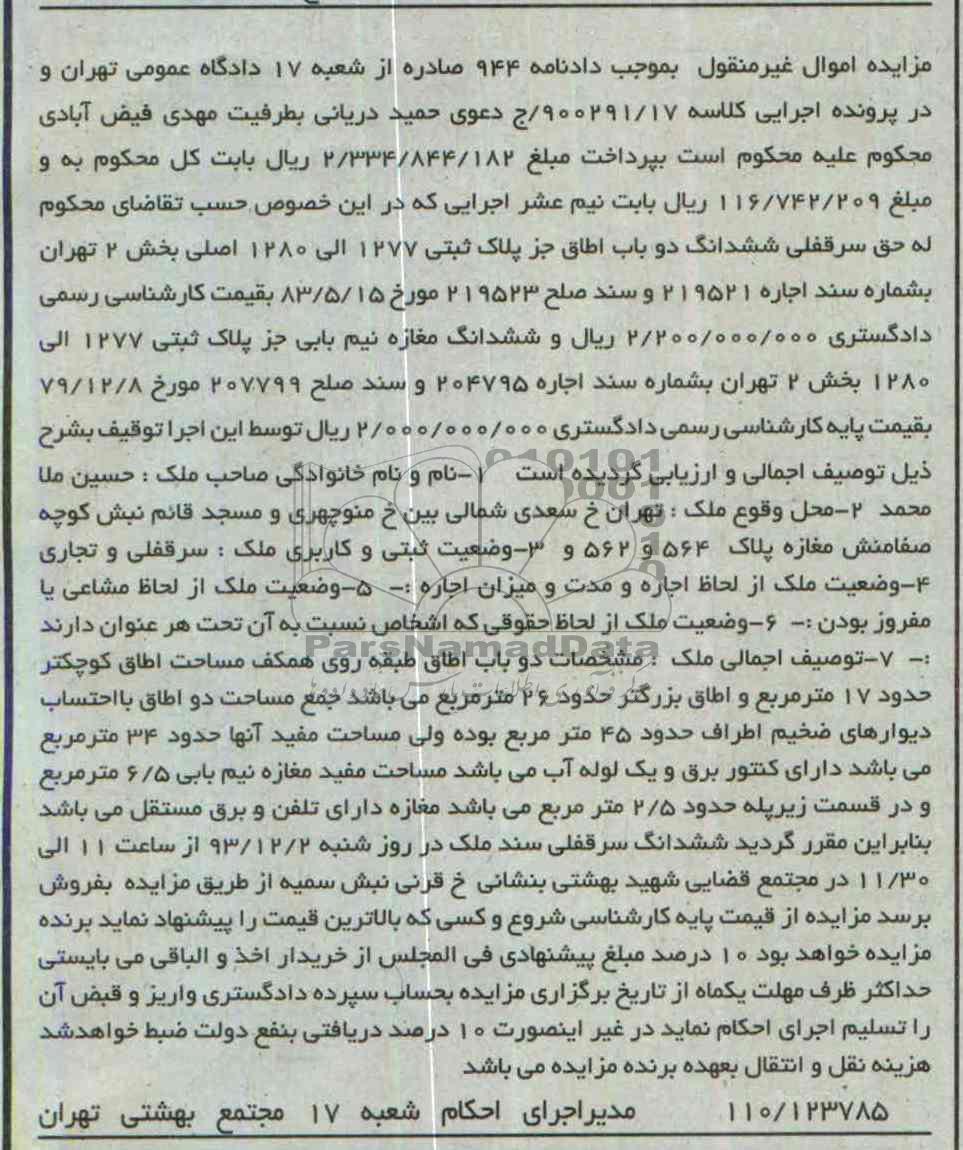 مزایده اموال غیرمنقول بموجب دادنامه ۹۴۴ صادره از شعبه ۱۷ دادگاه عمومی تهران و
در پرونده اجرایی کلاسه ۹۰۰۲۹۱/۱۷/ج دعوی حمید دریانی بطرفیت مهدی فیض آبادی
محکوم علیه محکوم است بپرداخت مبلغ ۲/۳۳۴/۸۴۴/۱۸۲ ریال بابت کل محکوم به و
مبلغ ۱۱۶/۷۴۲/۲۰۹ ریال بابت نیم عشر اجرایی که در این خصوص حسب تقاضای محکوم
له حق سرقفلی ششدانگ دو باب اطاق جز پلاک ثبتی ۱۲۷۷ الی ۱۲۸۰ اصلی بخش ۲ تهران
بشماره سند اجاره ۲۱۹۵۲۱ و سند صلح ۲۱۹۵۲۳ مورخ ۸۳/۵/۱۵ بقیمت کارشناسی رسمی
دادگستری ۲/۲۰۰/۰۰۰/۰۰۰ ریال و ششدانگ مغازه نیم بابی جز پلاک ثبتی ۱۲۷۷ الی
۱۲۸۰ بخش ۲ تهران بشماره سند اجاره ۲۰۴۷۹۵ و سند صلح ۲۰۷۷۹۹ مورخ ۷۹/۱۲/۸
بقیمت پایه کارشناسی رسمی دادگستری ۲/۰۰۰/۰۰۰/۰۰۰ ریال توسط این اجرا توقیف بشرح
ذیل توصیف اجمالی و ارزیابی گردیده است ۱-نام و نام خانوادگی صاحب ملک : حسین ملا
محمد ۲-محل وقوع ملک : تهران خ سعدی شمالی بین خ منوچهری و مسجد قائم نبش کوچه
صفامنش مغازه پلاک ۵۶۴ و ۵۶۲ و ۳-وضعیت ثبتی و کاربری ملک : سرقفلی و تجاری
۴-وضعیت ملک از لحاظ اجاره و مدت و میزان اجاره :- ۵-وضعیت ملک از لحاظ مشاعی یا
مفروز بودن :- ۶-وضعیت ملک از لحاظ حقوقی که اشخاص نسبت به آن تحت هر عنوان دارند
ParsNamadData
:- ۷-توصیف اجمالی ملک : مشخصات دو باب اطاق طبقه روی همکف مساحت اطاق کوچکتر
حدود ۱۷ مترمربع و اطاق بزرگتر حدود ۲۶ مترمربع می باشد جمع مساحت دو اطاق بااحتساب
دیوارهای ضخیم اطراف حدود ۴۵ متر مربع بوده ولی مساحت مفید آنها حدود ۳۴ مترمربع
می باشد دارای کنتور برق و یک لوله آب می باشد مساحت مفید مغازه نیم بابی ۶/۵ مترمربع
و در قسمت زیرپله حدود ۲/۵ متر مربع می باشد مغازه دارای تلفن و برق مستقل می باشد
بنابراین مقرر گردید ششدانگ سرقفلی سند ملک در روز شنبه ۹۳/۱۲/۲ از ساعت ۱۱ الی
۱۱/۳۰ در مجتمع قضایی شهید بهشتی بنشانی خ قرنی نبش سمیه از طریق مزایده بفروش
برسد مزایده از قیمت پایه کارشناسی شروع و کسی که بالاترین قیمت را پیشنهاد نماید برنده
مزایده خواهد بود ۱۰ درصد مبلغ پیشنهادی فی المجلس از خریدار اخذ و الباقی می بایستی
حداکثر ظرف مهلت یکماه از تاریخ برگزاری مزایده بحساب سپرده دادگستری واریز و قبض آن
را تسلیم اجرای احکام نماید در غیر اینصورت ۱۰ درصد دریافتی بنفع دولت ضبط خواهدشد
هزینه نقل و انتقال بعهده برنده مزایده می باشد
۱۱۰/۱۲۳۷۸۵ مدیراجرای احکام شعبه ۱۷ مجتمع بهشتی تهران